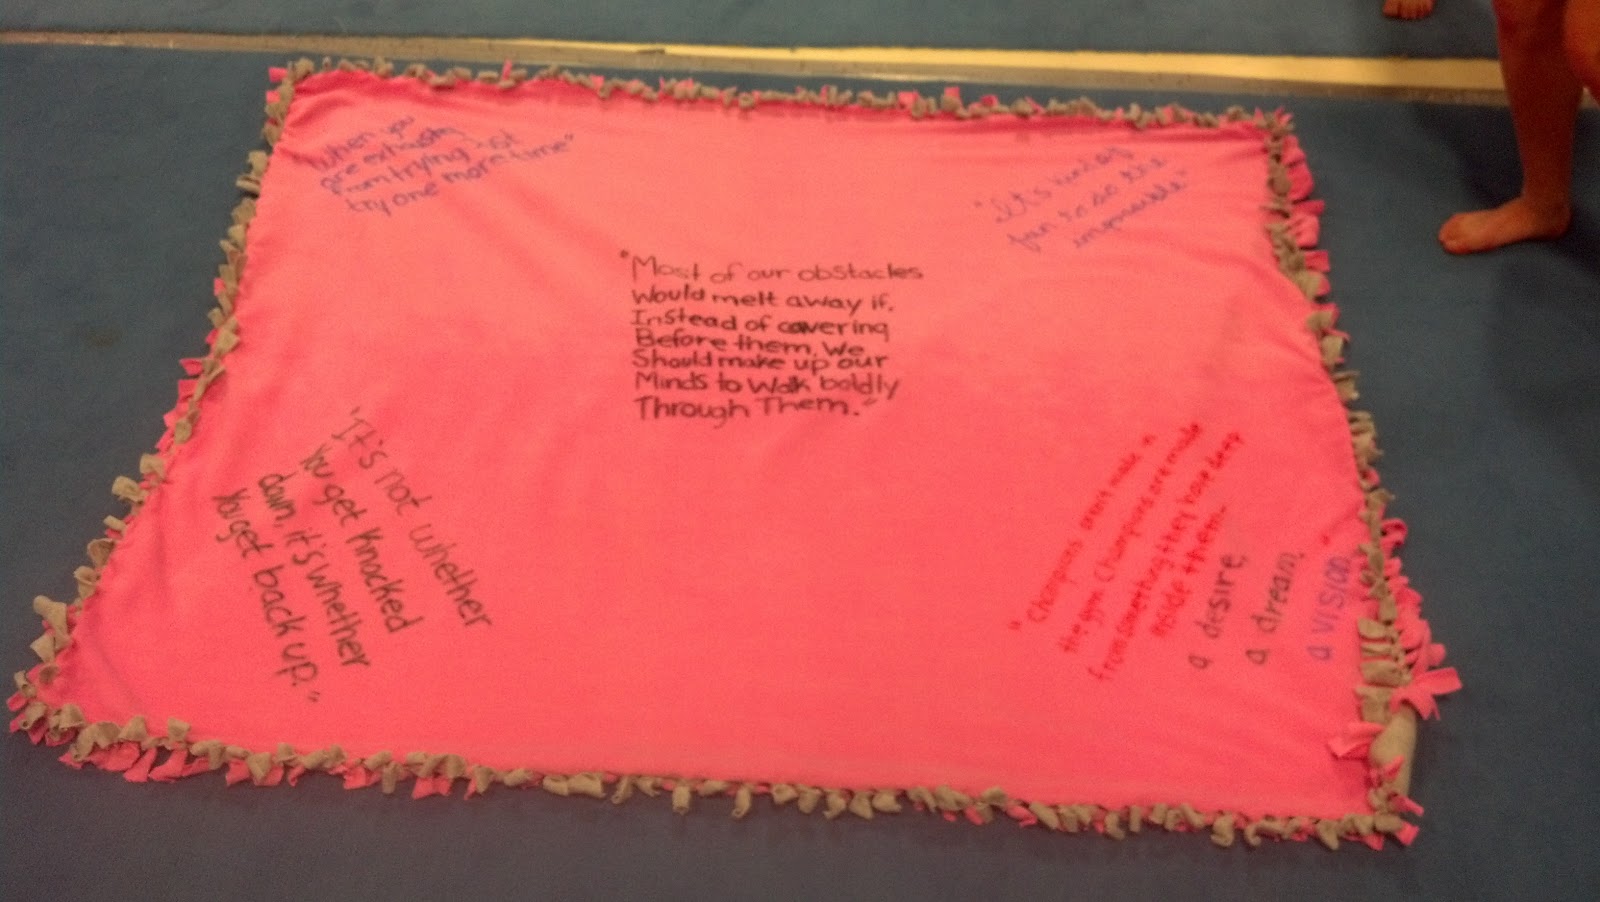 "When you
are exhausted
from trying just
try one more time"
"It's kinda
fun to do the
impossible"
"Most of our obstacles
Would melt away if,
Instead of cowering
Before them, We
Should make up our
Minds to Walk boldly
Through Them."
"It's not whether
You get Knocked
down, it's whether
You get back up."
"Champions aren't made in
the gym Champions are made
from something they have deep
inside them-
a desire,
a dream,
a vision"